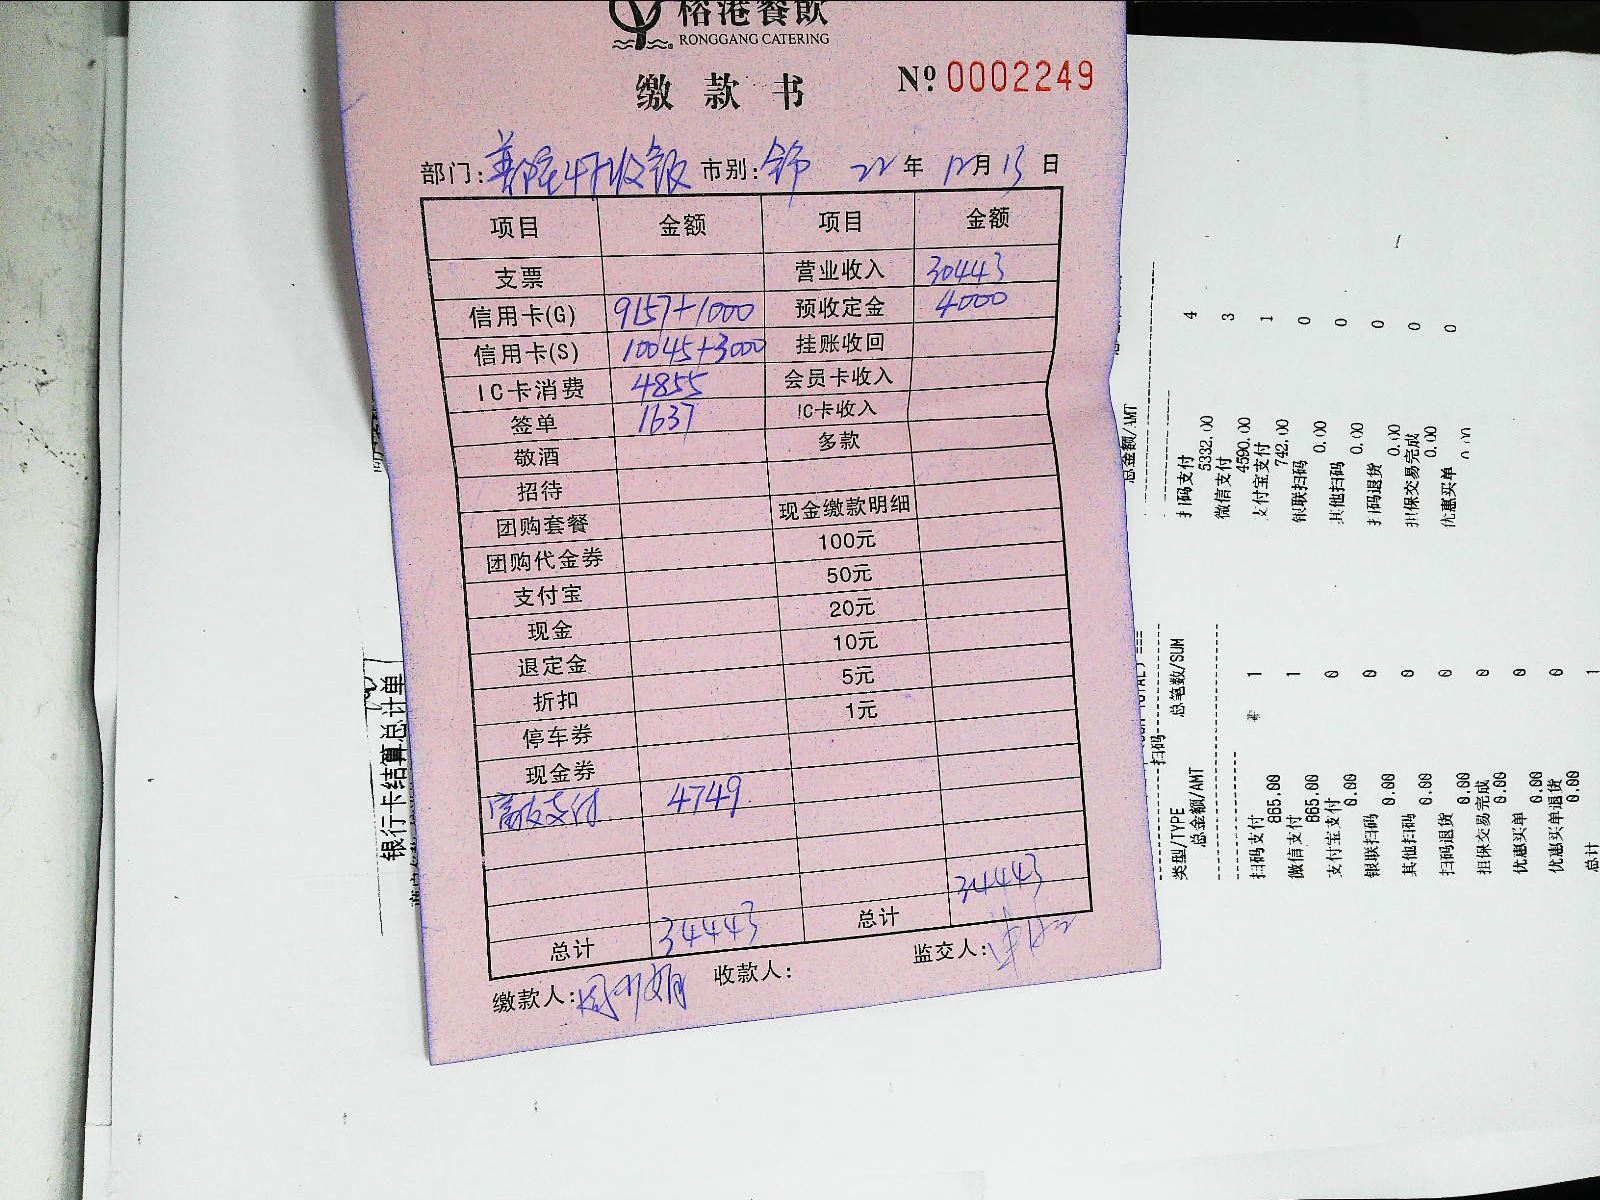 榕港餐飲
RONGGANG CATERING
缴款书
Nº 0002249
部门: 市别: 22 年 12 月 13 日
项目 金额 项目 金额
支票 营业收入 30443
信用卡(G) 9157+1000 预收定金 4000
信用卡(S) 10045+3000 挂账收回
IC卡消费 4855 会员卡收入
签单 1637 IC卡收入
敬酒 多款
招待
团购套餐 现金缴款明细
团购代金券 100元
支付宝 50元
现金 20元
退定金 10元
折扣 5元
停车券 1元
现金券
支付 4749
总计 34443 总计 34443
缴款人: 收款人: 监交人:
银行卡结算总计单
总金额/AMT
扫码支付 4
5332.00
微信支付 3
4590.00
支付宝支付 1
742.00
银联扫码 0
0.00
其他扫码 0
0.00
扫码退货 0
0.00
担保交易完成 0
0.00
优惠买单 0
0.00
扫码
类型/TYPE 总笔数/SUM
总金额/AMT
扫码支付 1
865.00
微信支付 1
865.00
支付宝支付 0
0.00
银联扫码 0
0.00
其他扫码 0
0.00
扫码退货 0
0.00
担保交易完成 0
0.00
优惠买单 0
0.00
优惠买单退货 0
0.00
总计 1